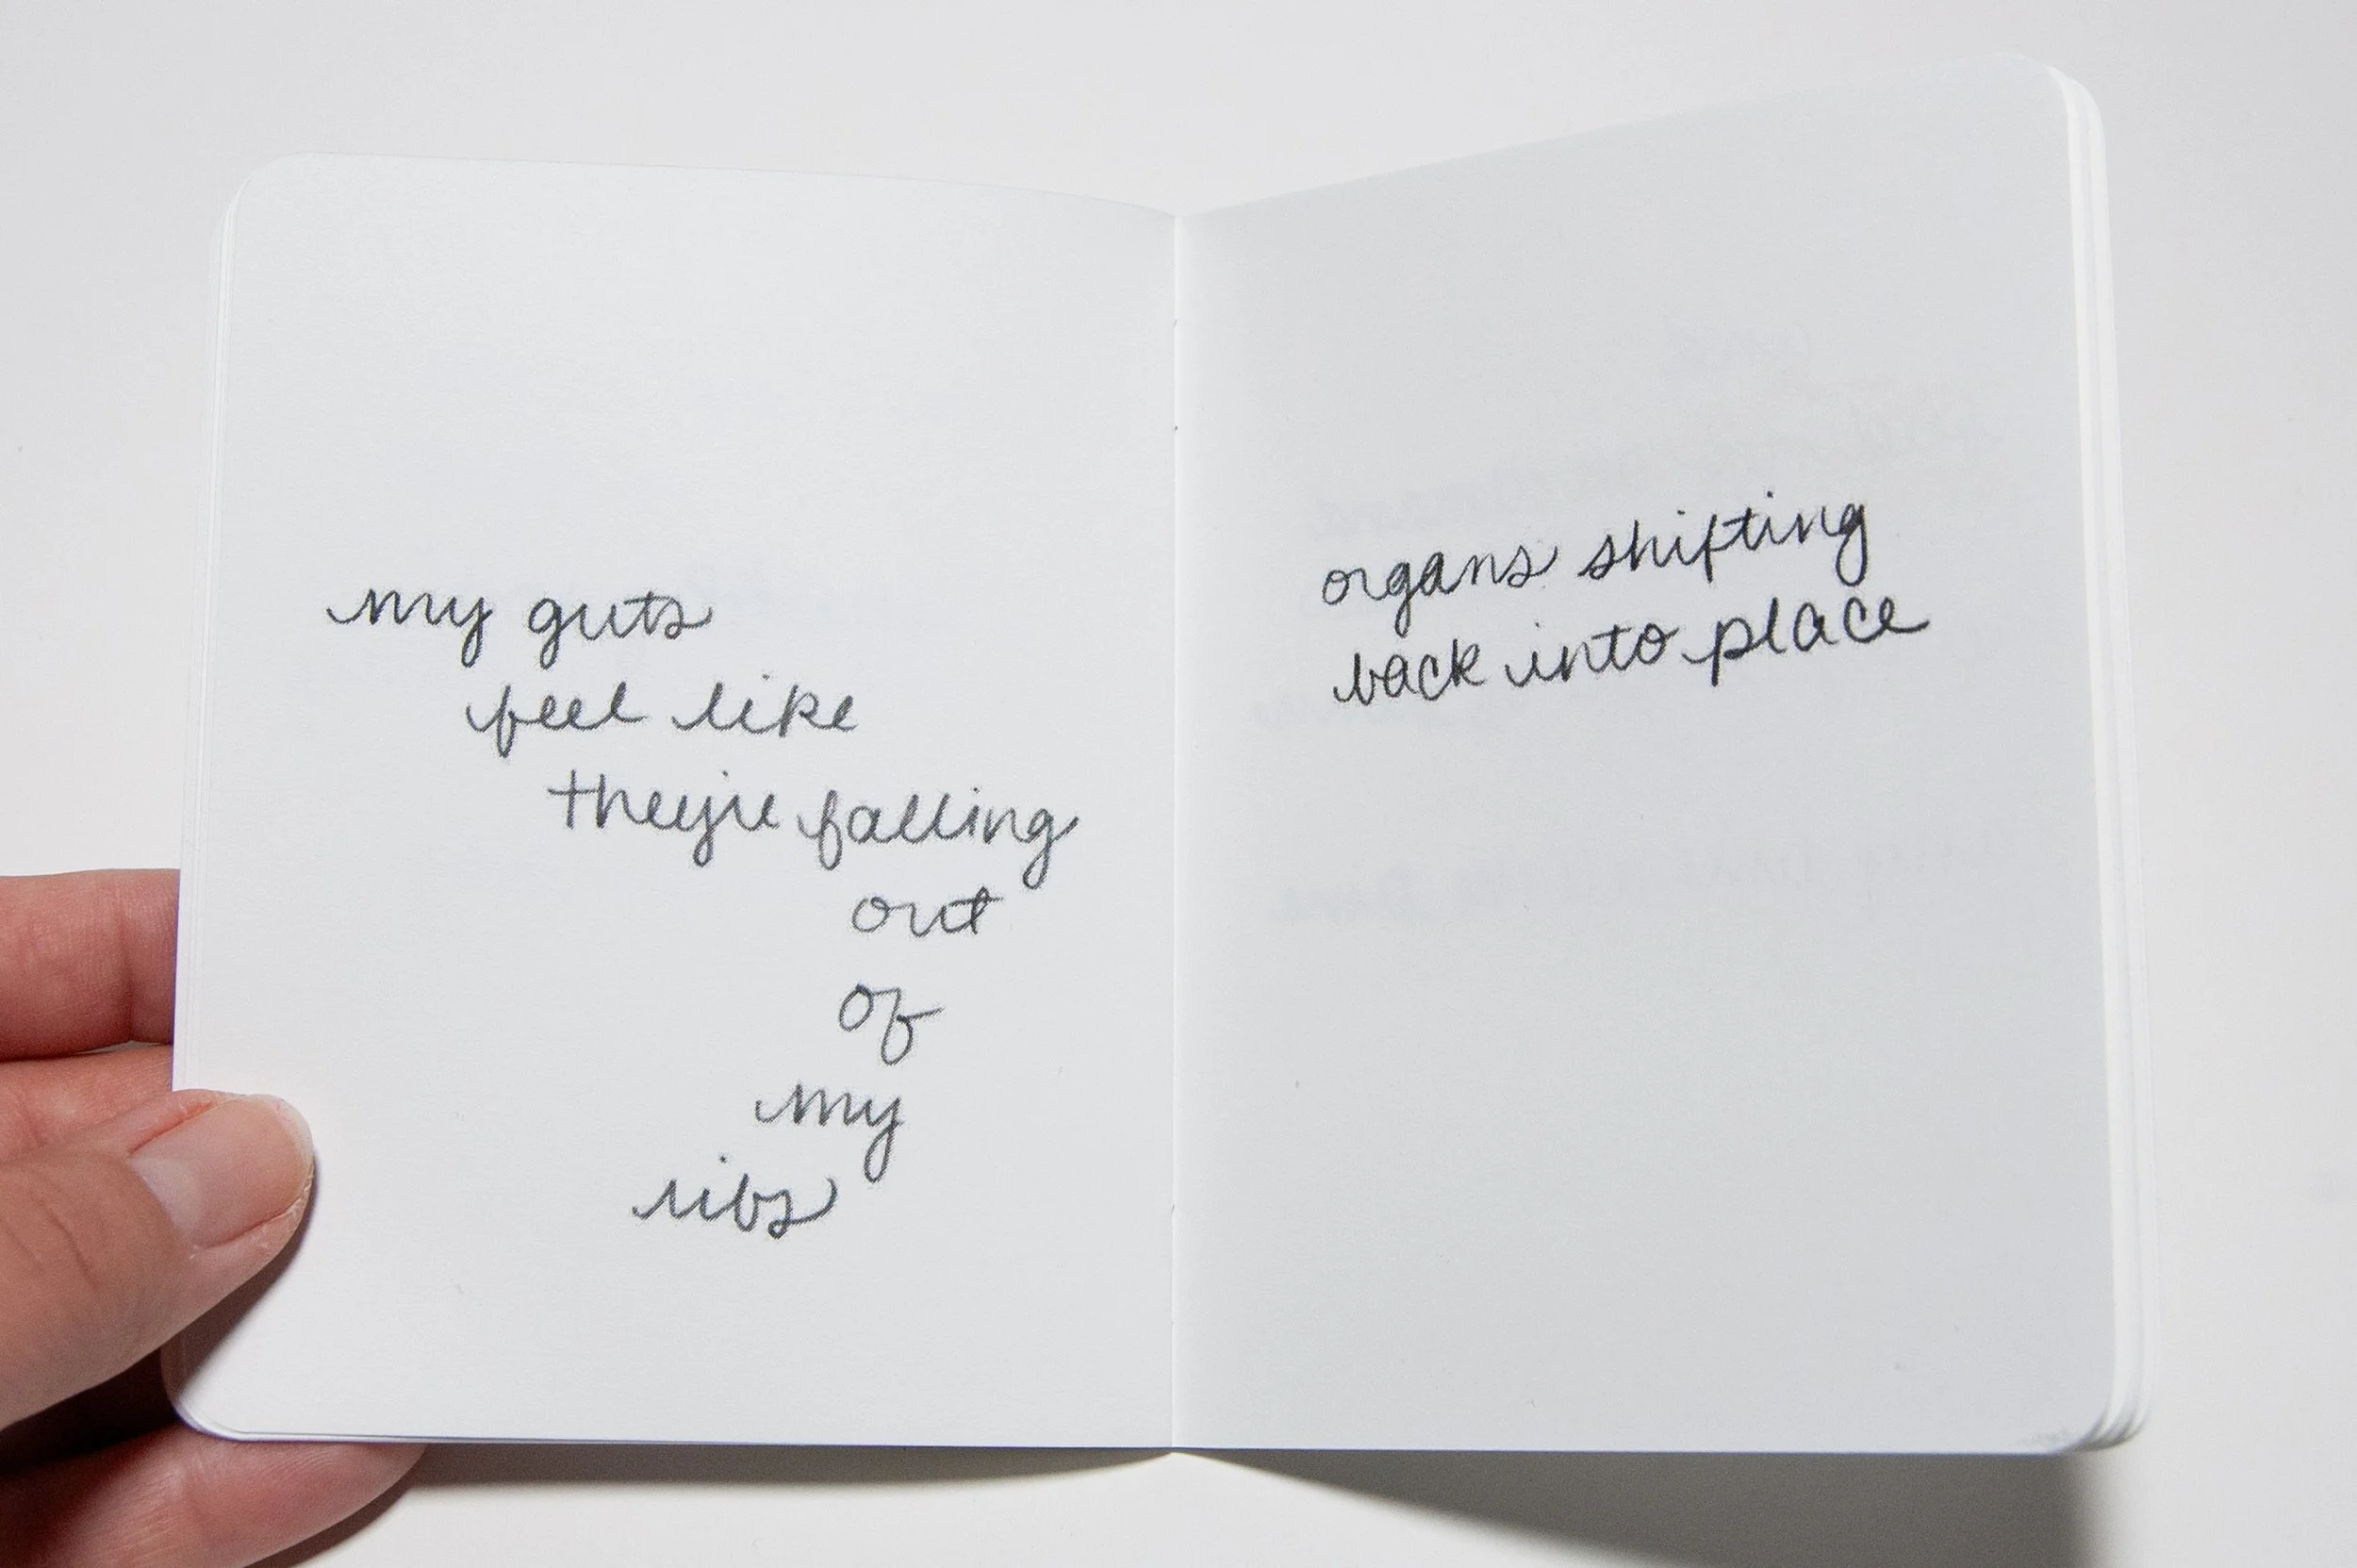 my guts
feel like
they're falling
out
of
my
ribs
organs shifting
back into place